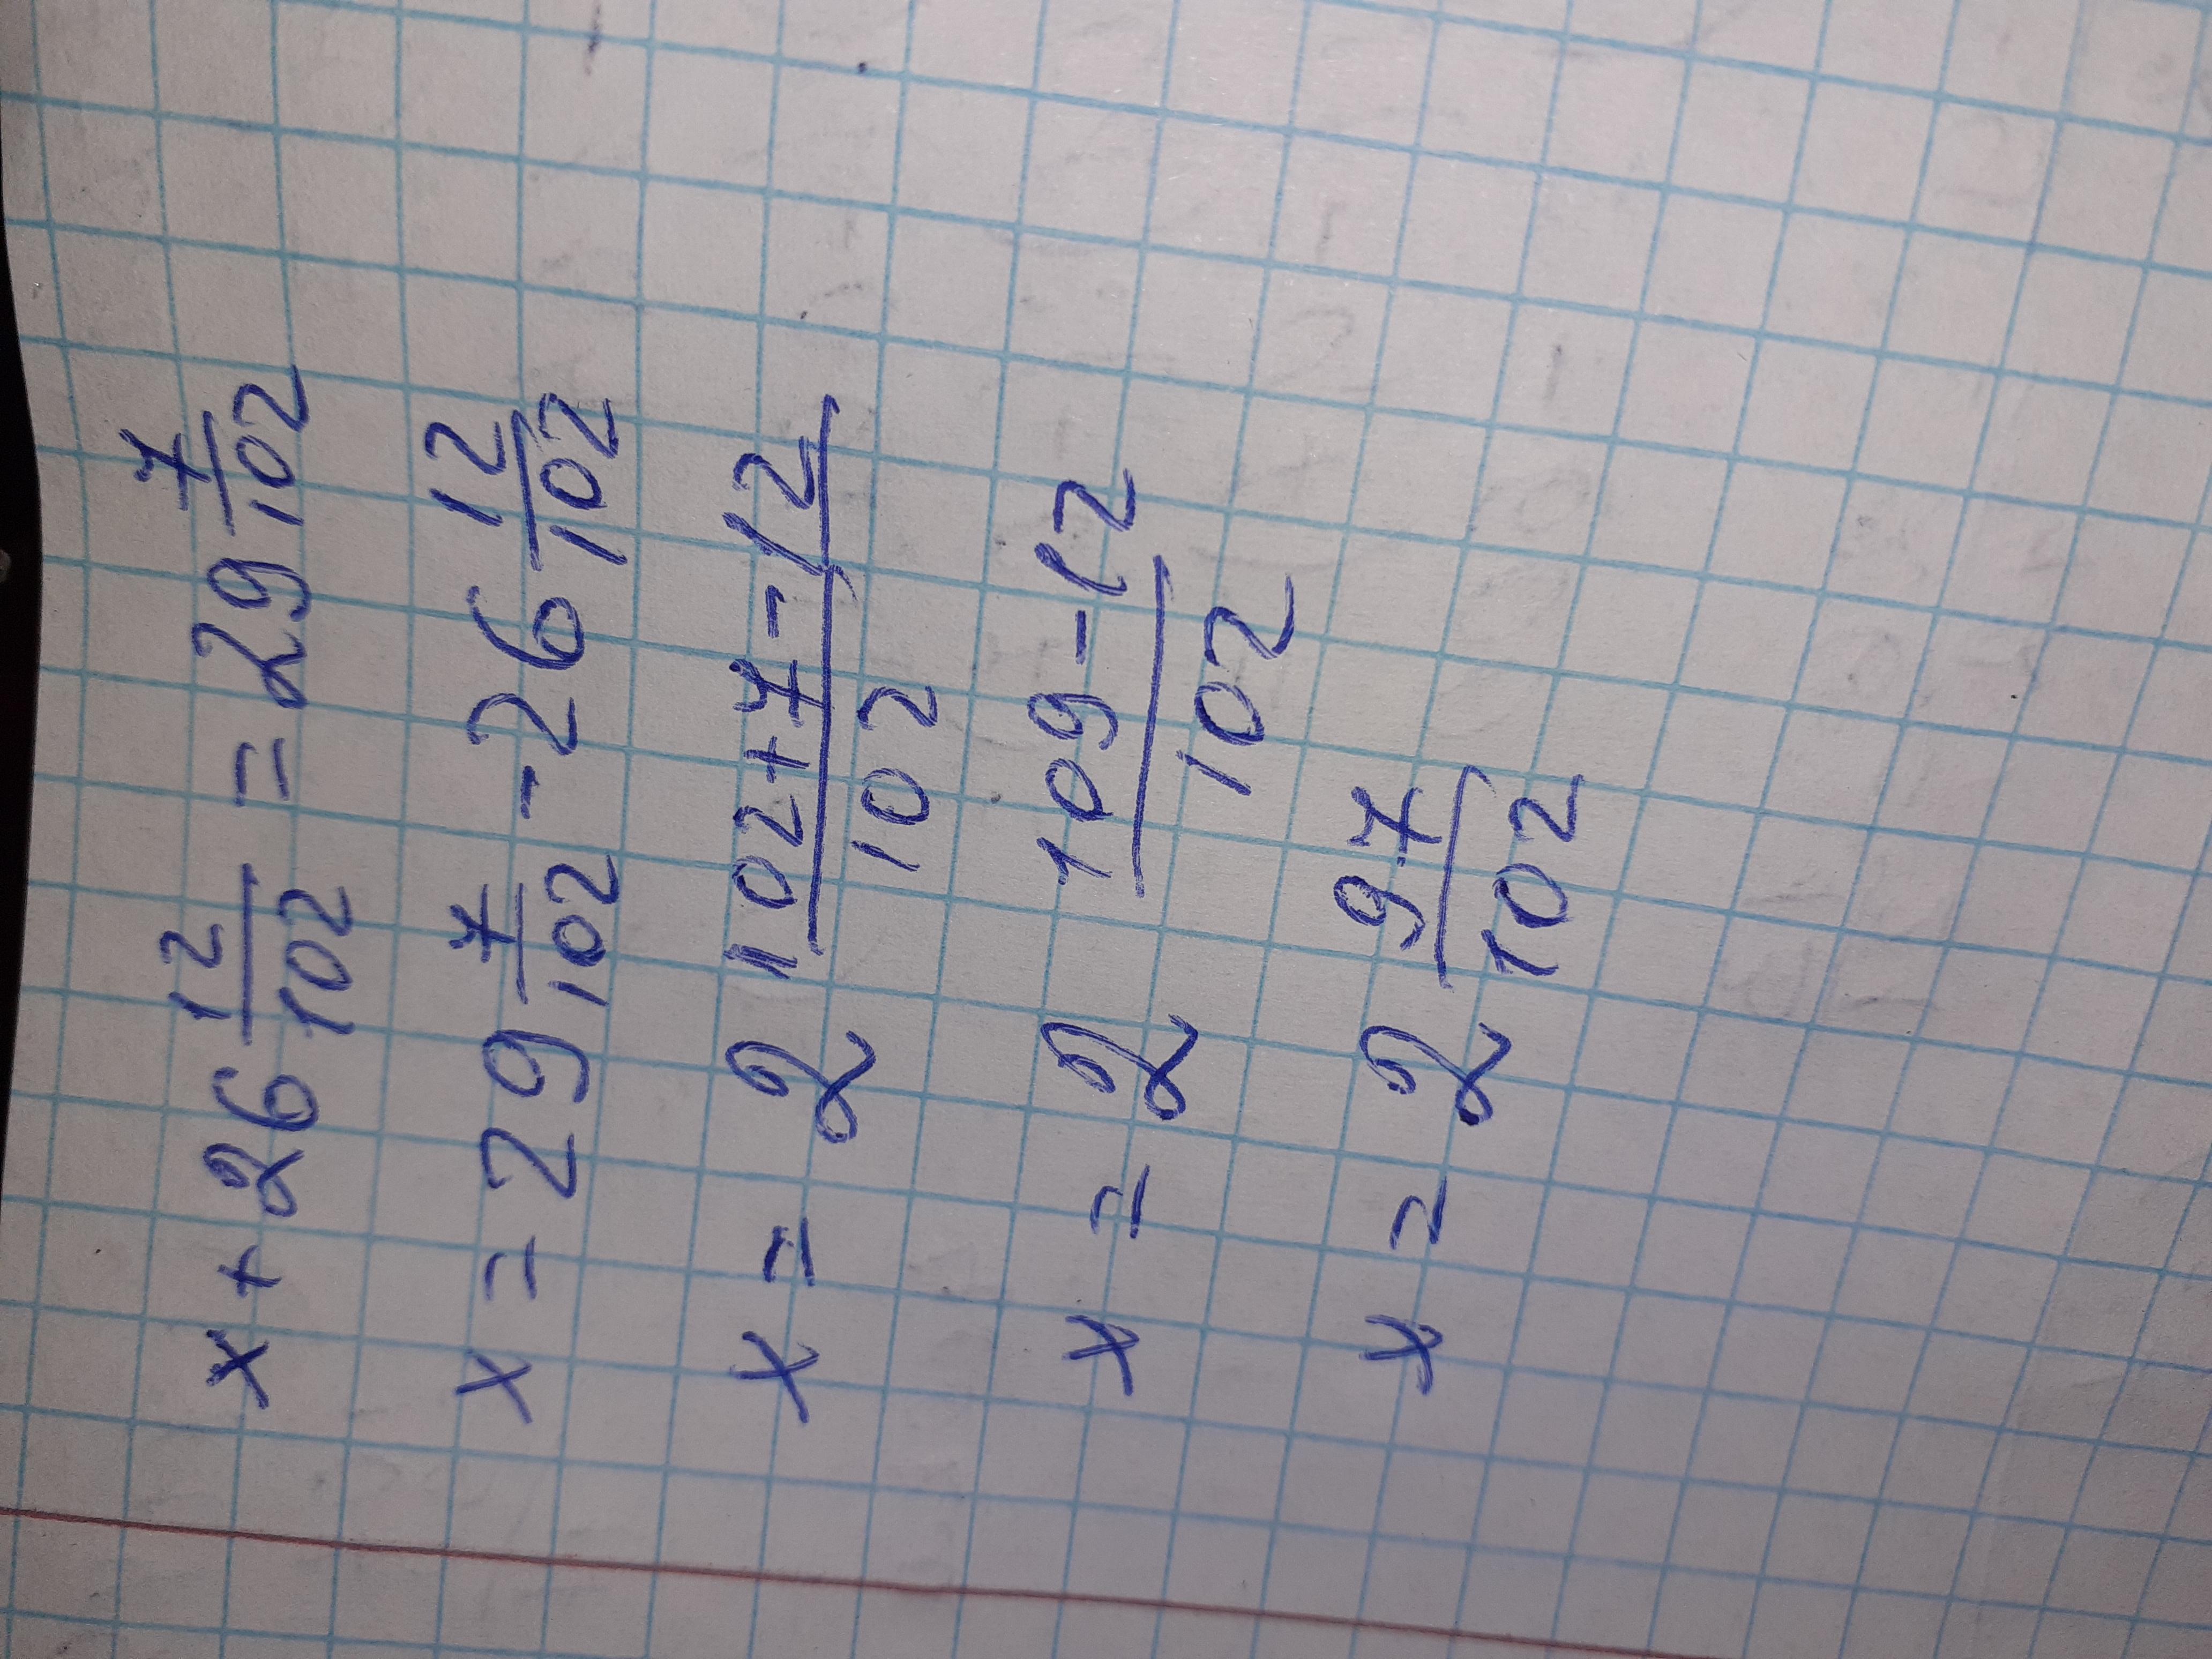 x + 26 12/102 = 29 7/102
x = 29 7/102 - 26 12/102
x = 2 102+7-12/102
x = 2 109-12/102
x = 2 97/102